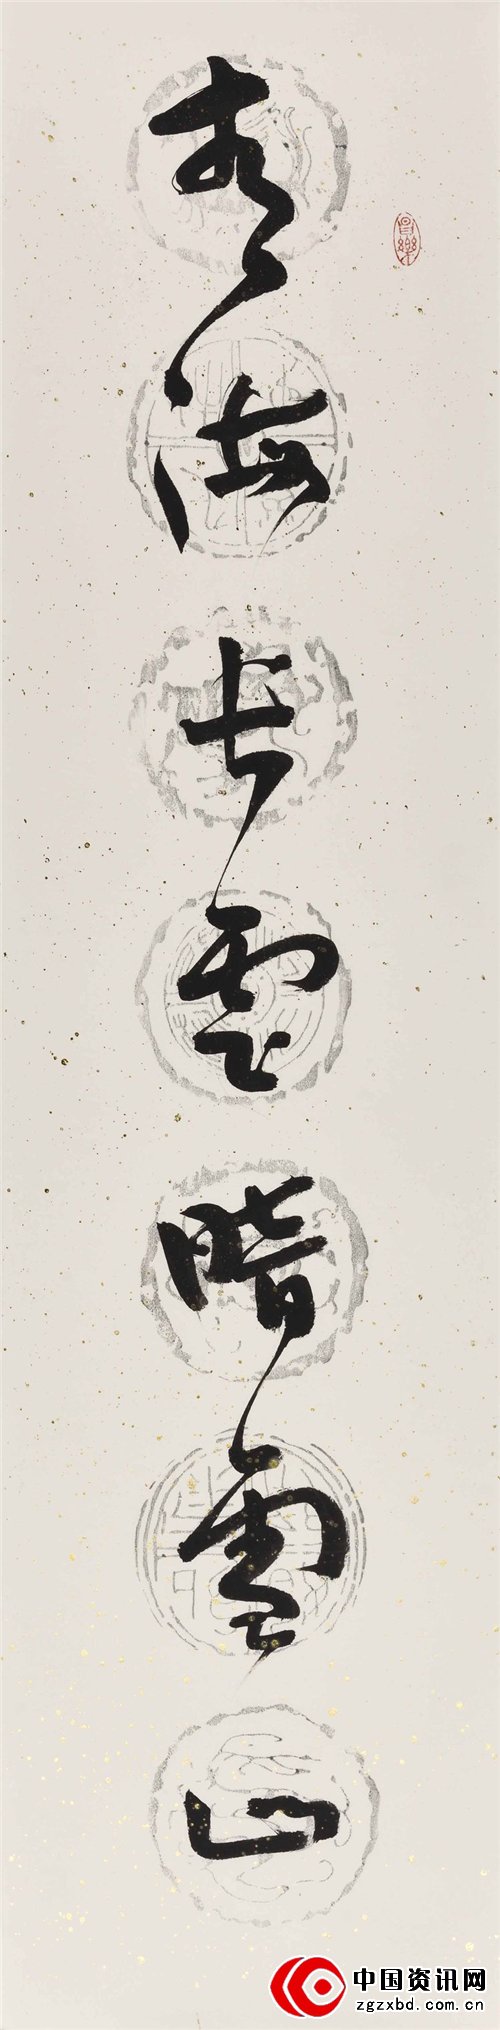 青海长云暗雪山
昌樂
中国资讯网
zgzxbd.com.cn